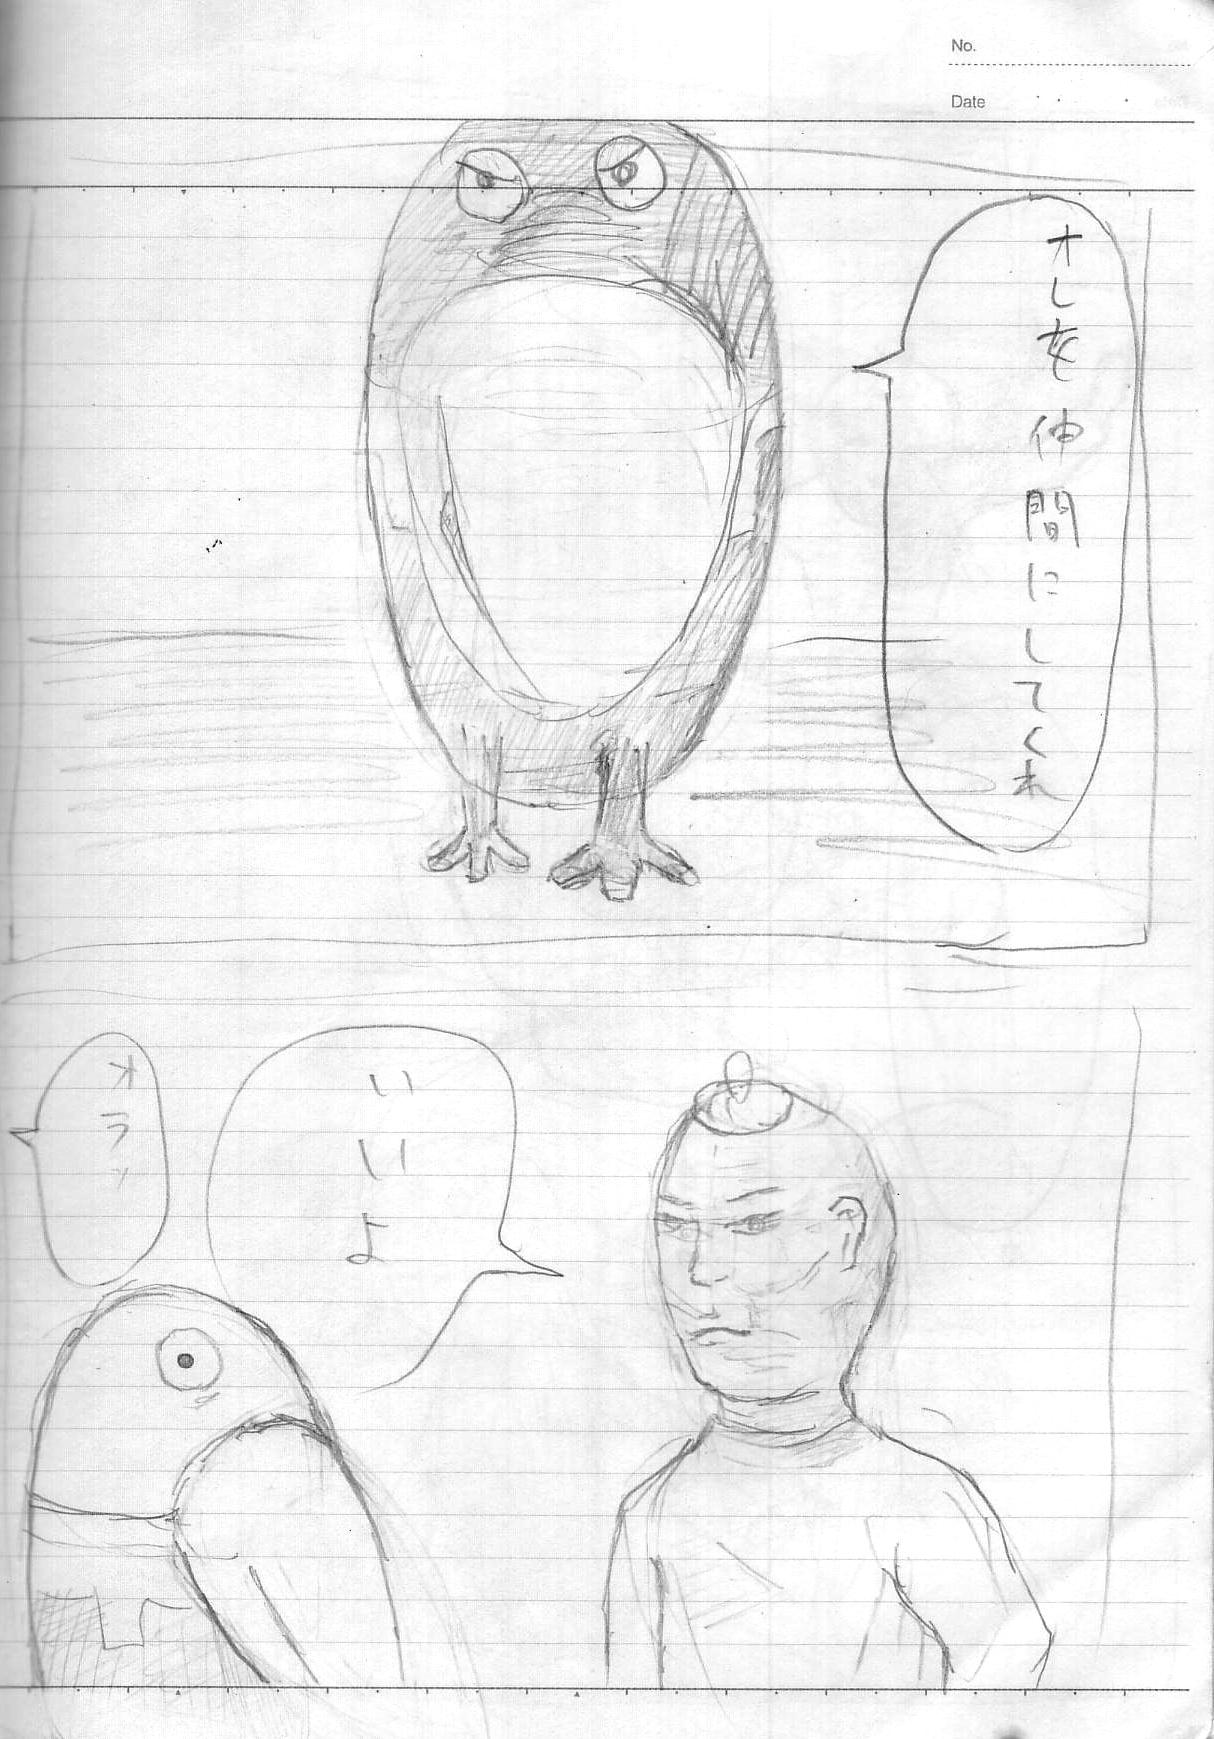 No.
Date
オレを仲間にしてくれ
いいよ
オラッ